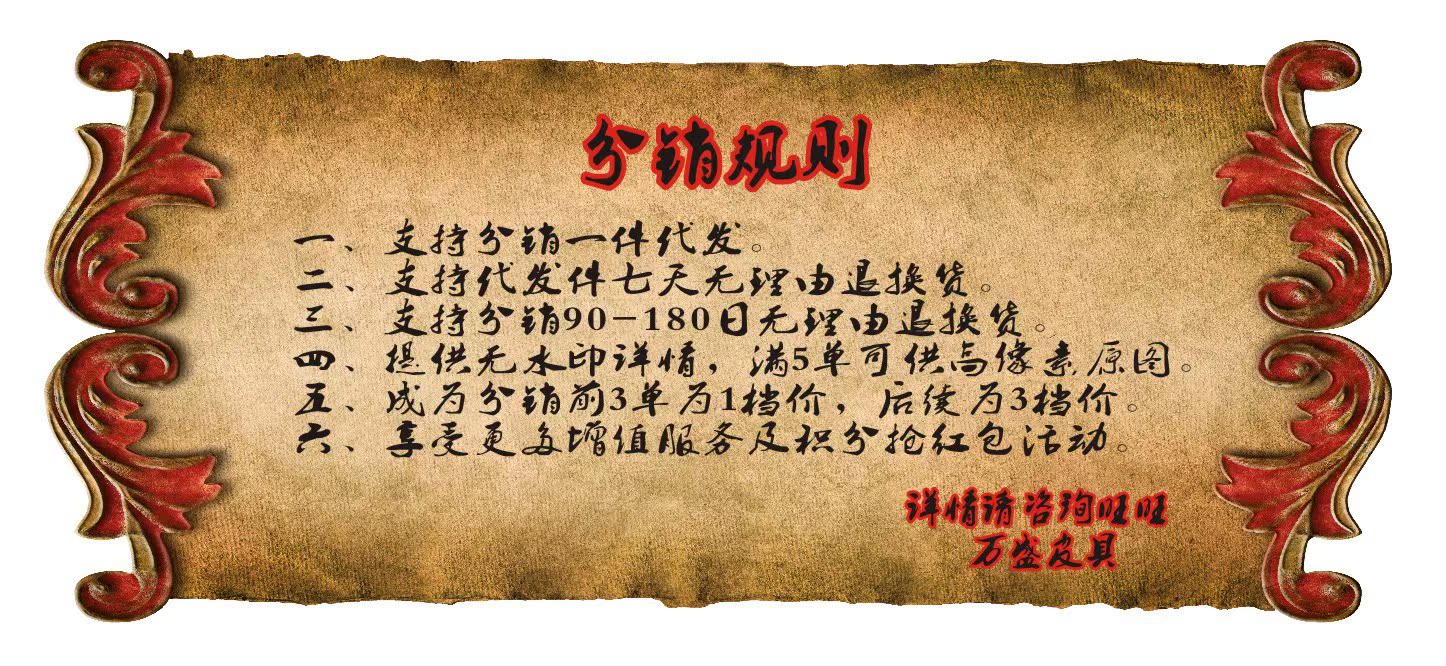 分销规则
一、支持分销一件代发。
二、支持代发件七天无理由退换货。
三、支持分销90-180日无理由退换货。
四、提供无水印详情，满5单可供高像素原图。
五、成为分销前3单为1档价，后续为3档价。
六、享受更多增值服务及积分抢红包活动。
详情请咨询旺旺
万盛皮具